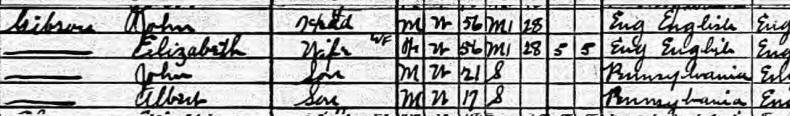 Gibson John Head M W 56 M1 28 Eng English Eng
Elizabeth Wife W F W 56 M1 28 5 5 Eng English Eng
John Son M W 21 S Pennsylvania Eng
Albert Son M W 17 S Pennsylvania Eng